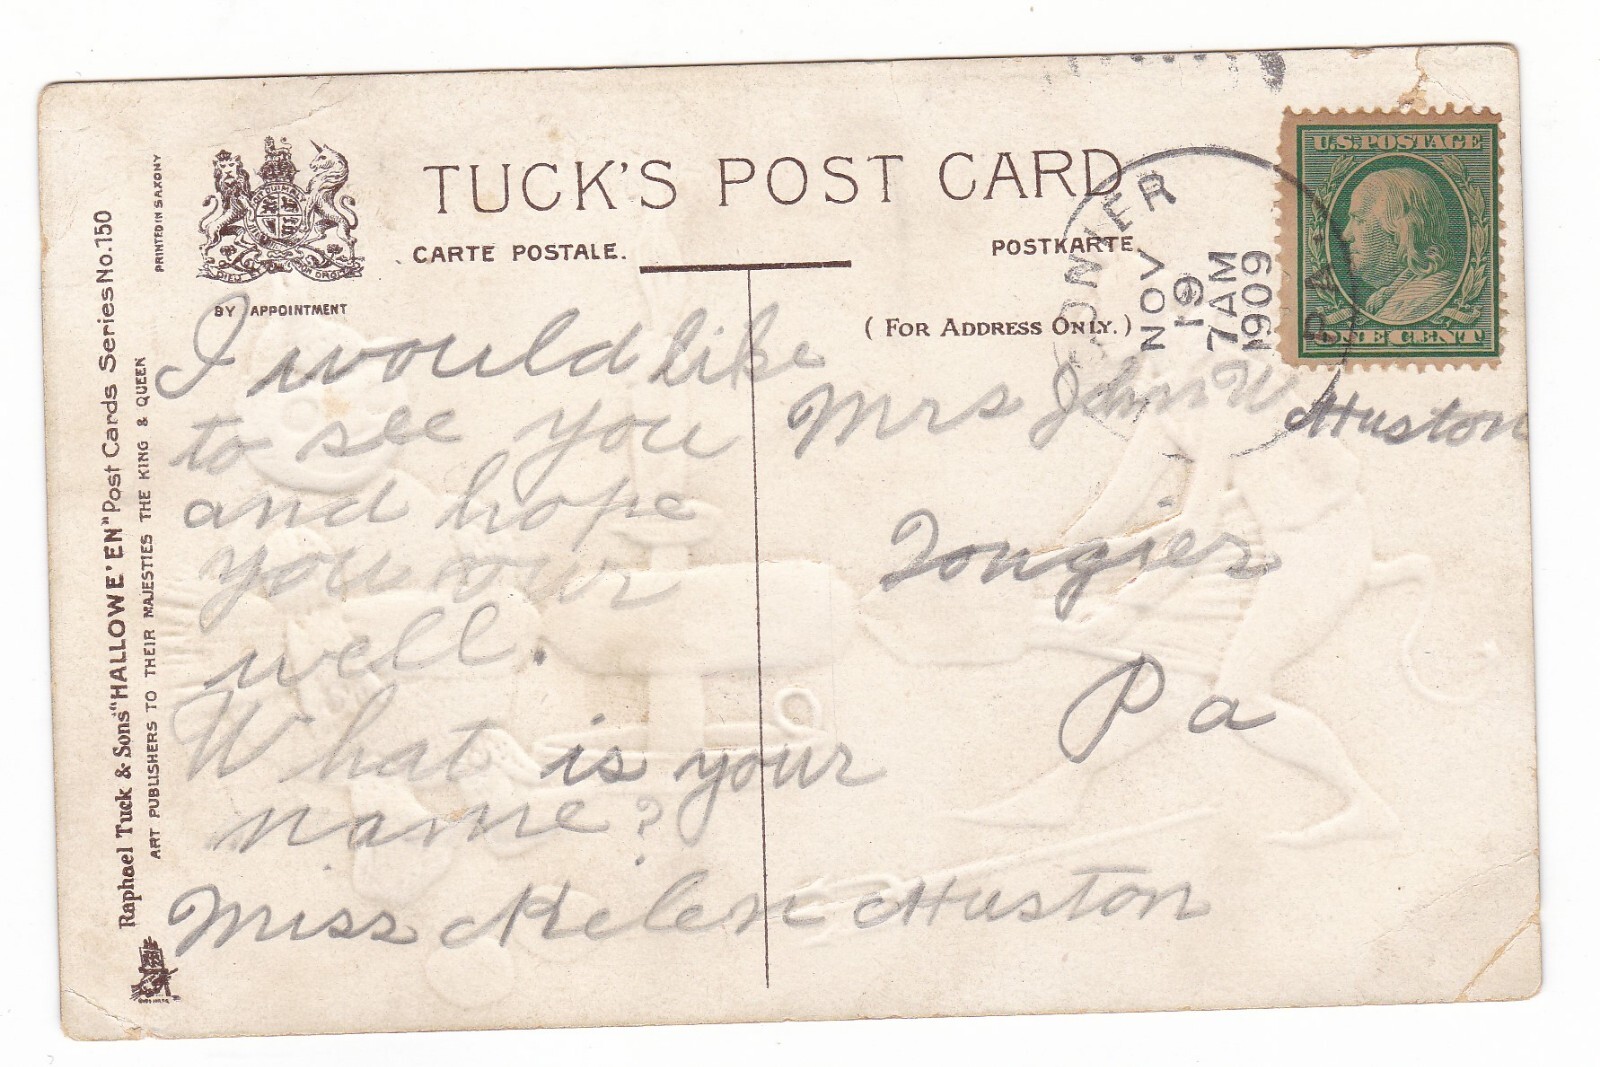 TUCK'S POST CARD
CARTE POSTALE.
POSTKARTE.
(FOR ADDRESS ONLY.)
BY APPOINTMENT
PRINTED IN SAXONY
Raphael Tuck & Sons' "HALLOWE'EN" Post Cards Series No. 150
ART PUBLISHERS TO THEIR MAJESTIES THE KING & QUEEN
NOV
19
7AM
1909
PA.
U.S. POSTAGE
ONE CENT
I would like
to see you
and hope
you our
well.
What is your
name?
Miss Helen Huston
Mrs John W Huston
Tongier
Pa